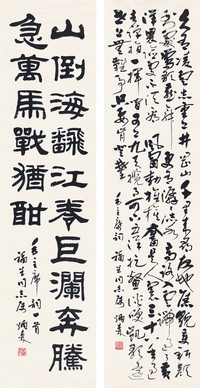 久有凌雲志重上井岡山千里来尋故地舊貌變新顏
到處鶯歌燕舞更有潺潺流水高路入雲端過了黃
洋界險處不須看風雷動旌旗奮是人寰三十八年過
去彈指一揮間可上九天攬月可下五洋捉鱉談笑凱歌還
世上無難事只要肯登攀
毛主席詞
山倒海飜江卷巨瀾奔騰
急萬馬戰猶酣
毛主席詞一首
同志屬 炳森